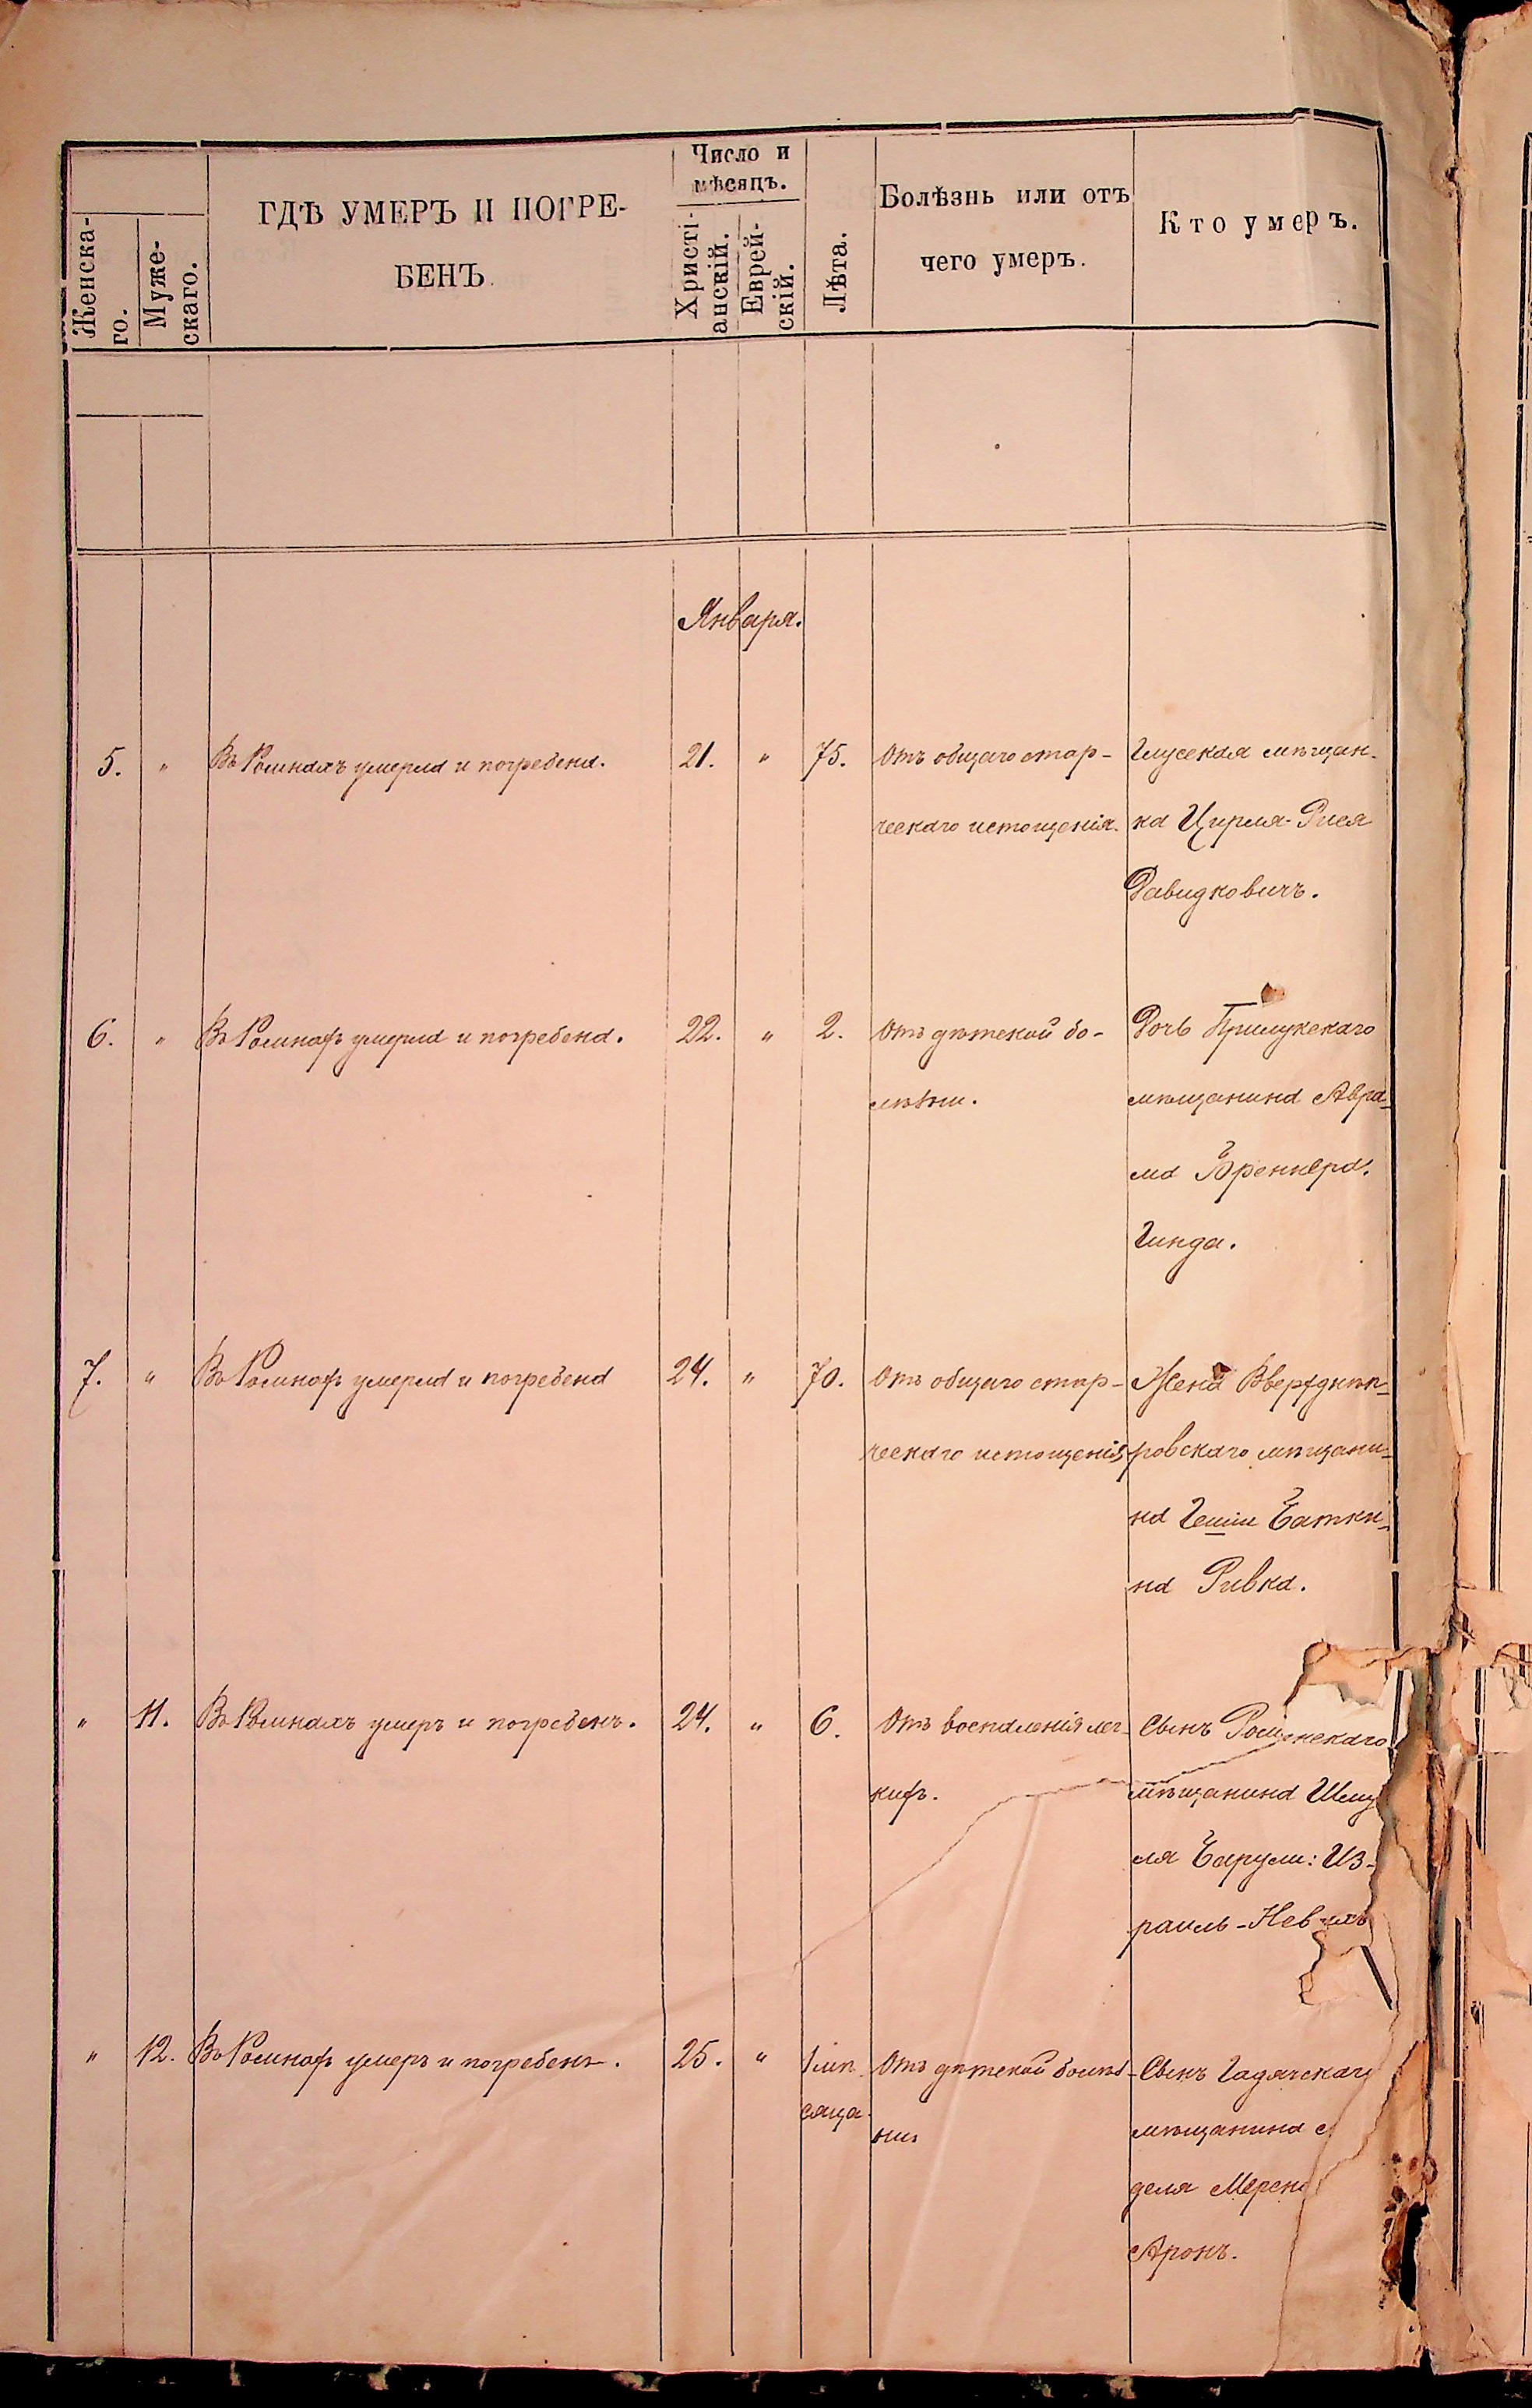 Число и
мѣсяцъ.
Женска-
го.
Муже-
скаго.
ГДѢ УМЕРЪ И ПОГРЕ-
БЕНЪ.
Христі-
анскій.
Еврей-
скій.
Лѣта.
Болѣзнь или отъ
чего умеръ.
Кто умеръ.
Января.
5. " Въ Ромнахъ умерла и погребена. 21. " 75. Отъ общаго стар- Глусская мѣщан-
ческаго истощенія. ка Цирля-Рися
Давидковичъ.
6. " Въ Ромнахъ умерла и погребена. 22. " 2. Отъ дѣтской бо- Дочь Прилукскаго
лѣзни. мѣщанина Авра-
ма Бреннера:
Гинда.
7. " Въ Ромнахъ умерла и погребена 24. " 70. Отъ общаго стар- Жена Вверхднѣп-
ческаго истощенія ровскаго мѣщани-
на Гешии Баткн-
на Ривка.
" 11. Въ Ромнахъ умеръ и погребенъ. 24. " 6. Отъ воспаленія лег- Сынъ Роменскаго
кихъ. мѣщанина Шму
ля Барули: Из-
раиль-Нев
" 12. Въ Ромнахъ умеръ и погребенъ. 25. " 1 мѣ- Отъ дѣтской болѣз- Сынъ Гадячскаго
сяца. ни мѣщанина
деля Мерен
Аронъ.